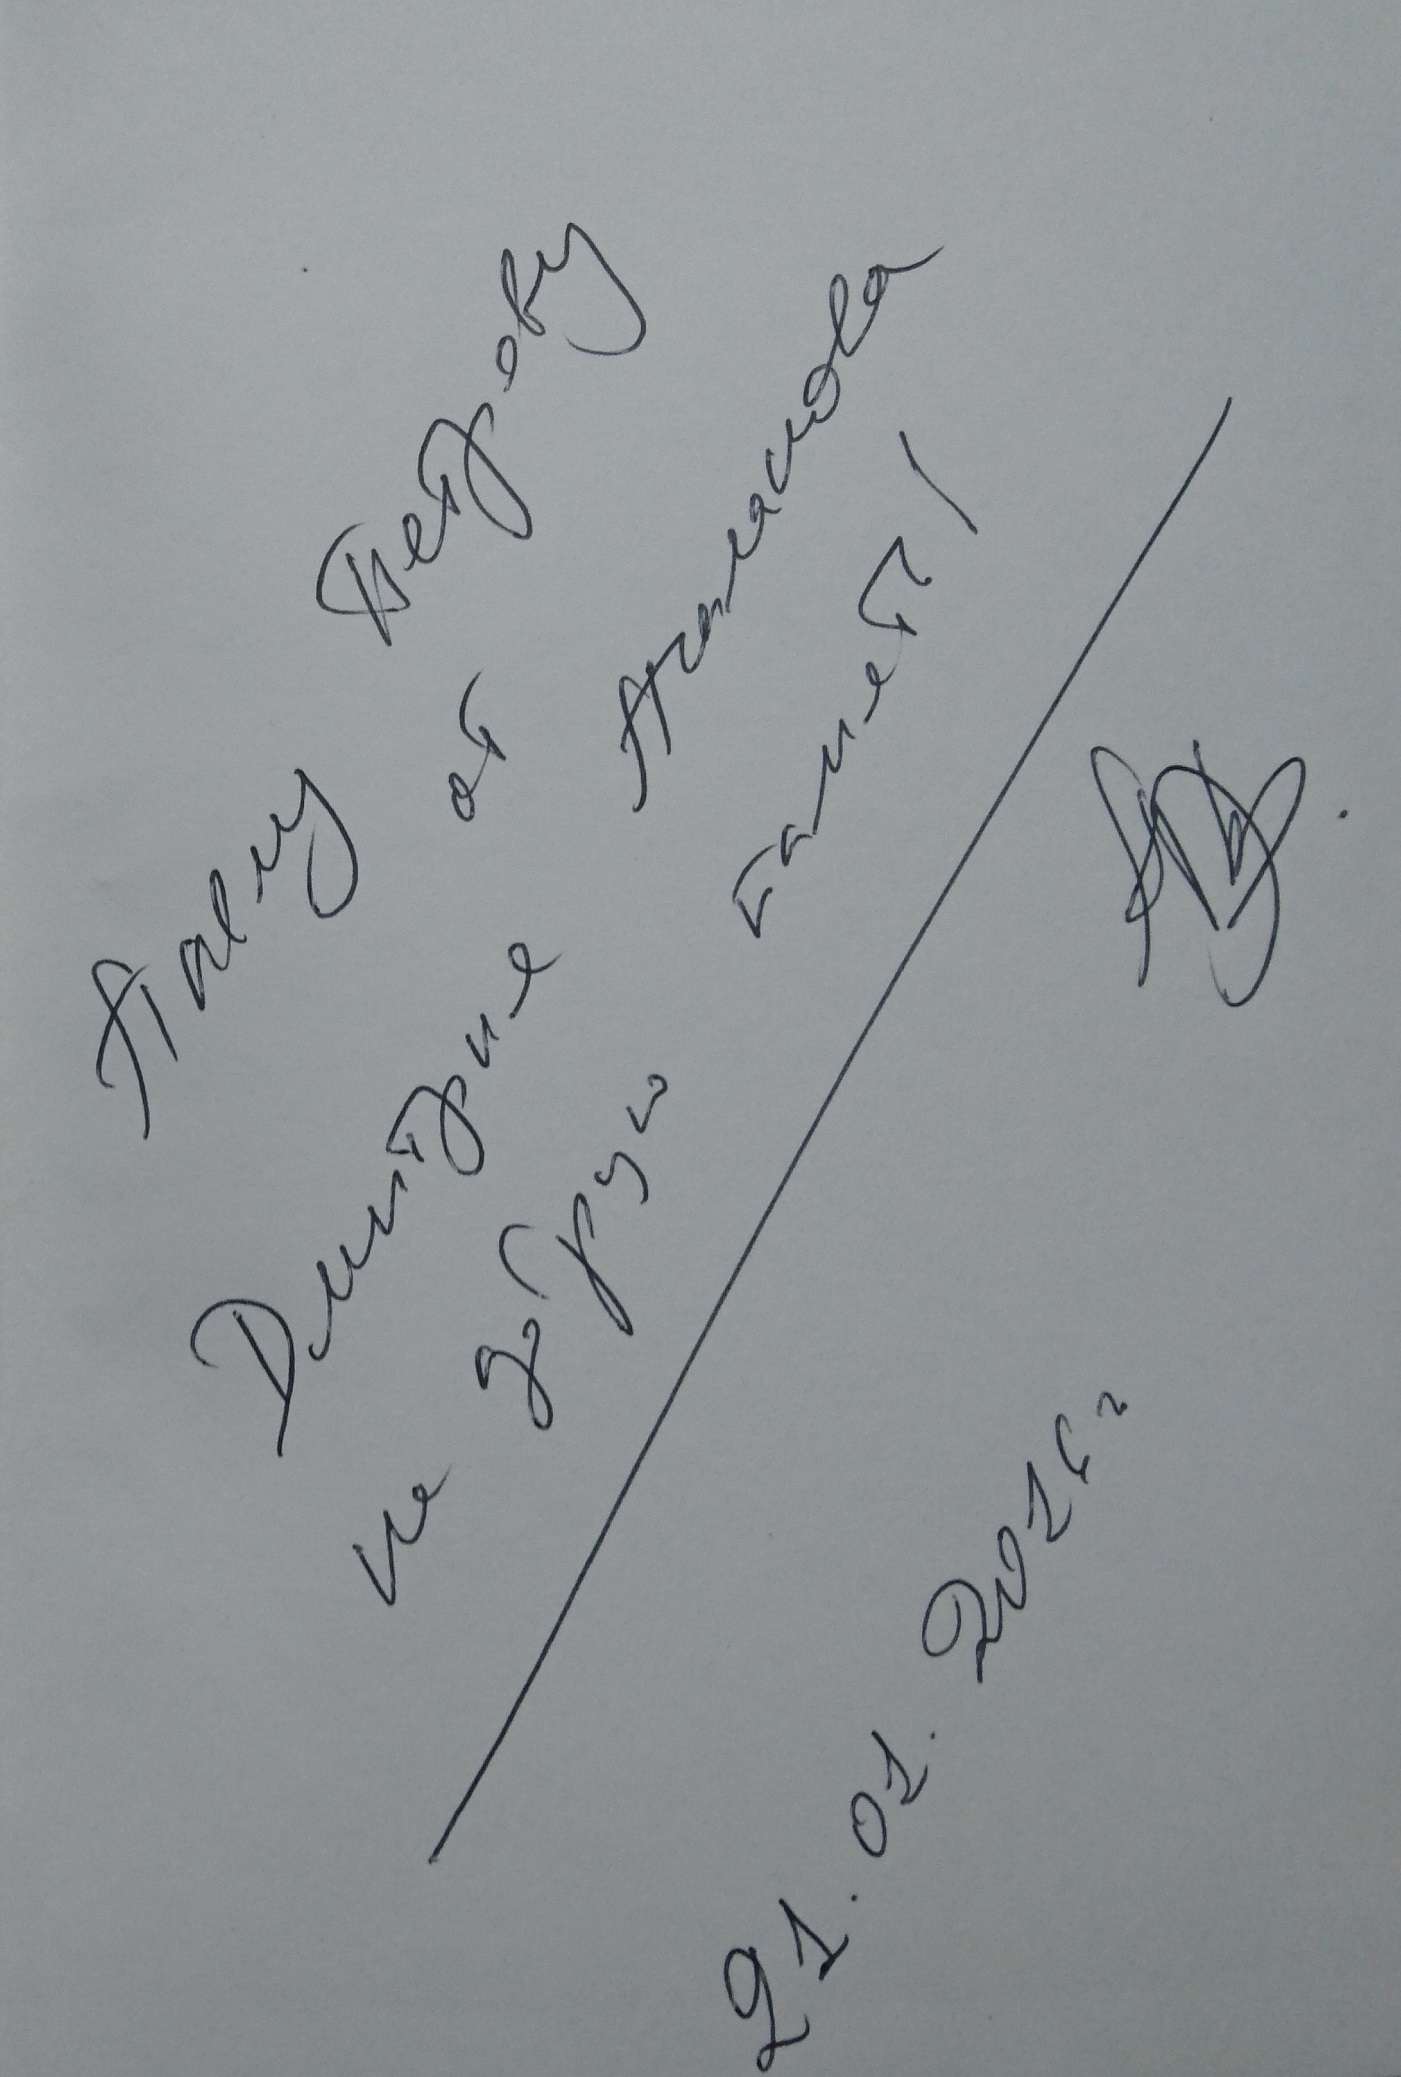 Павлу Петрову
от
Дмитрия
на добрую память!
21.01.2016 г